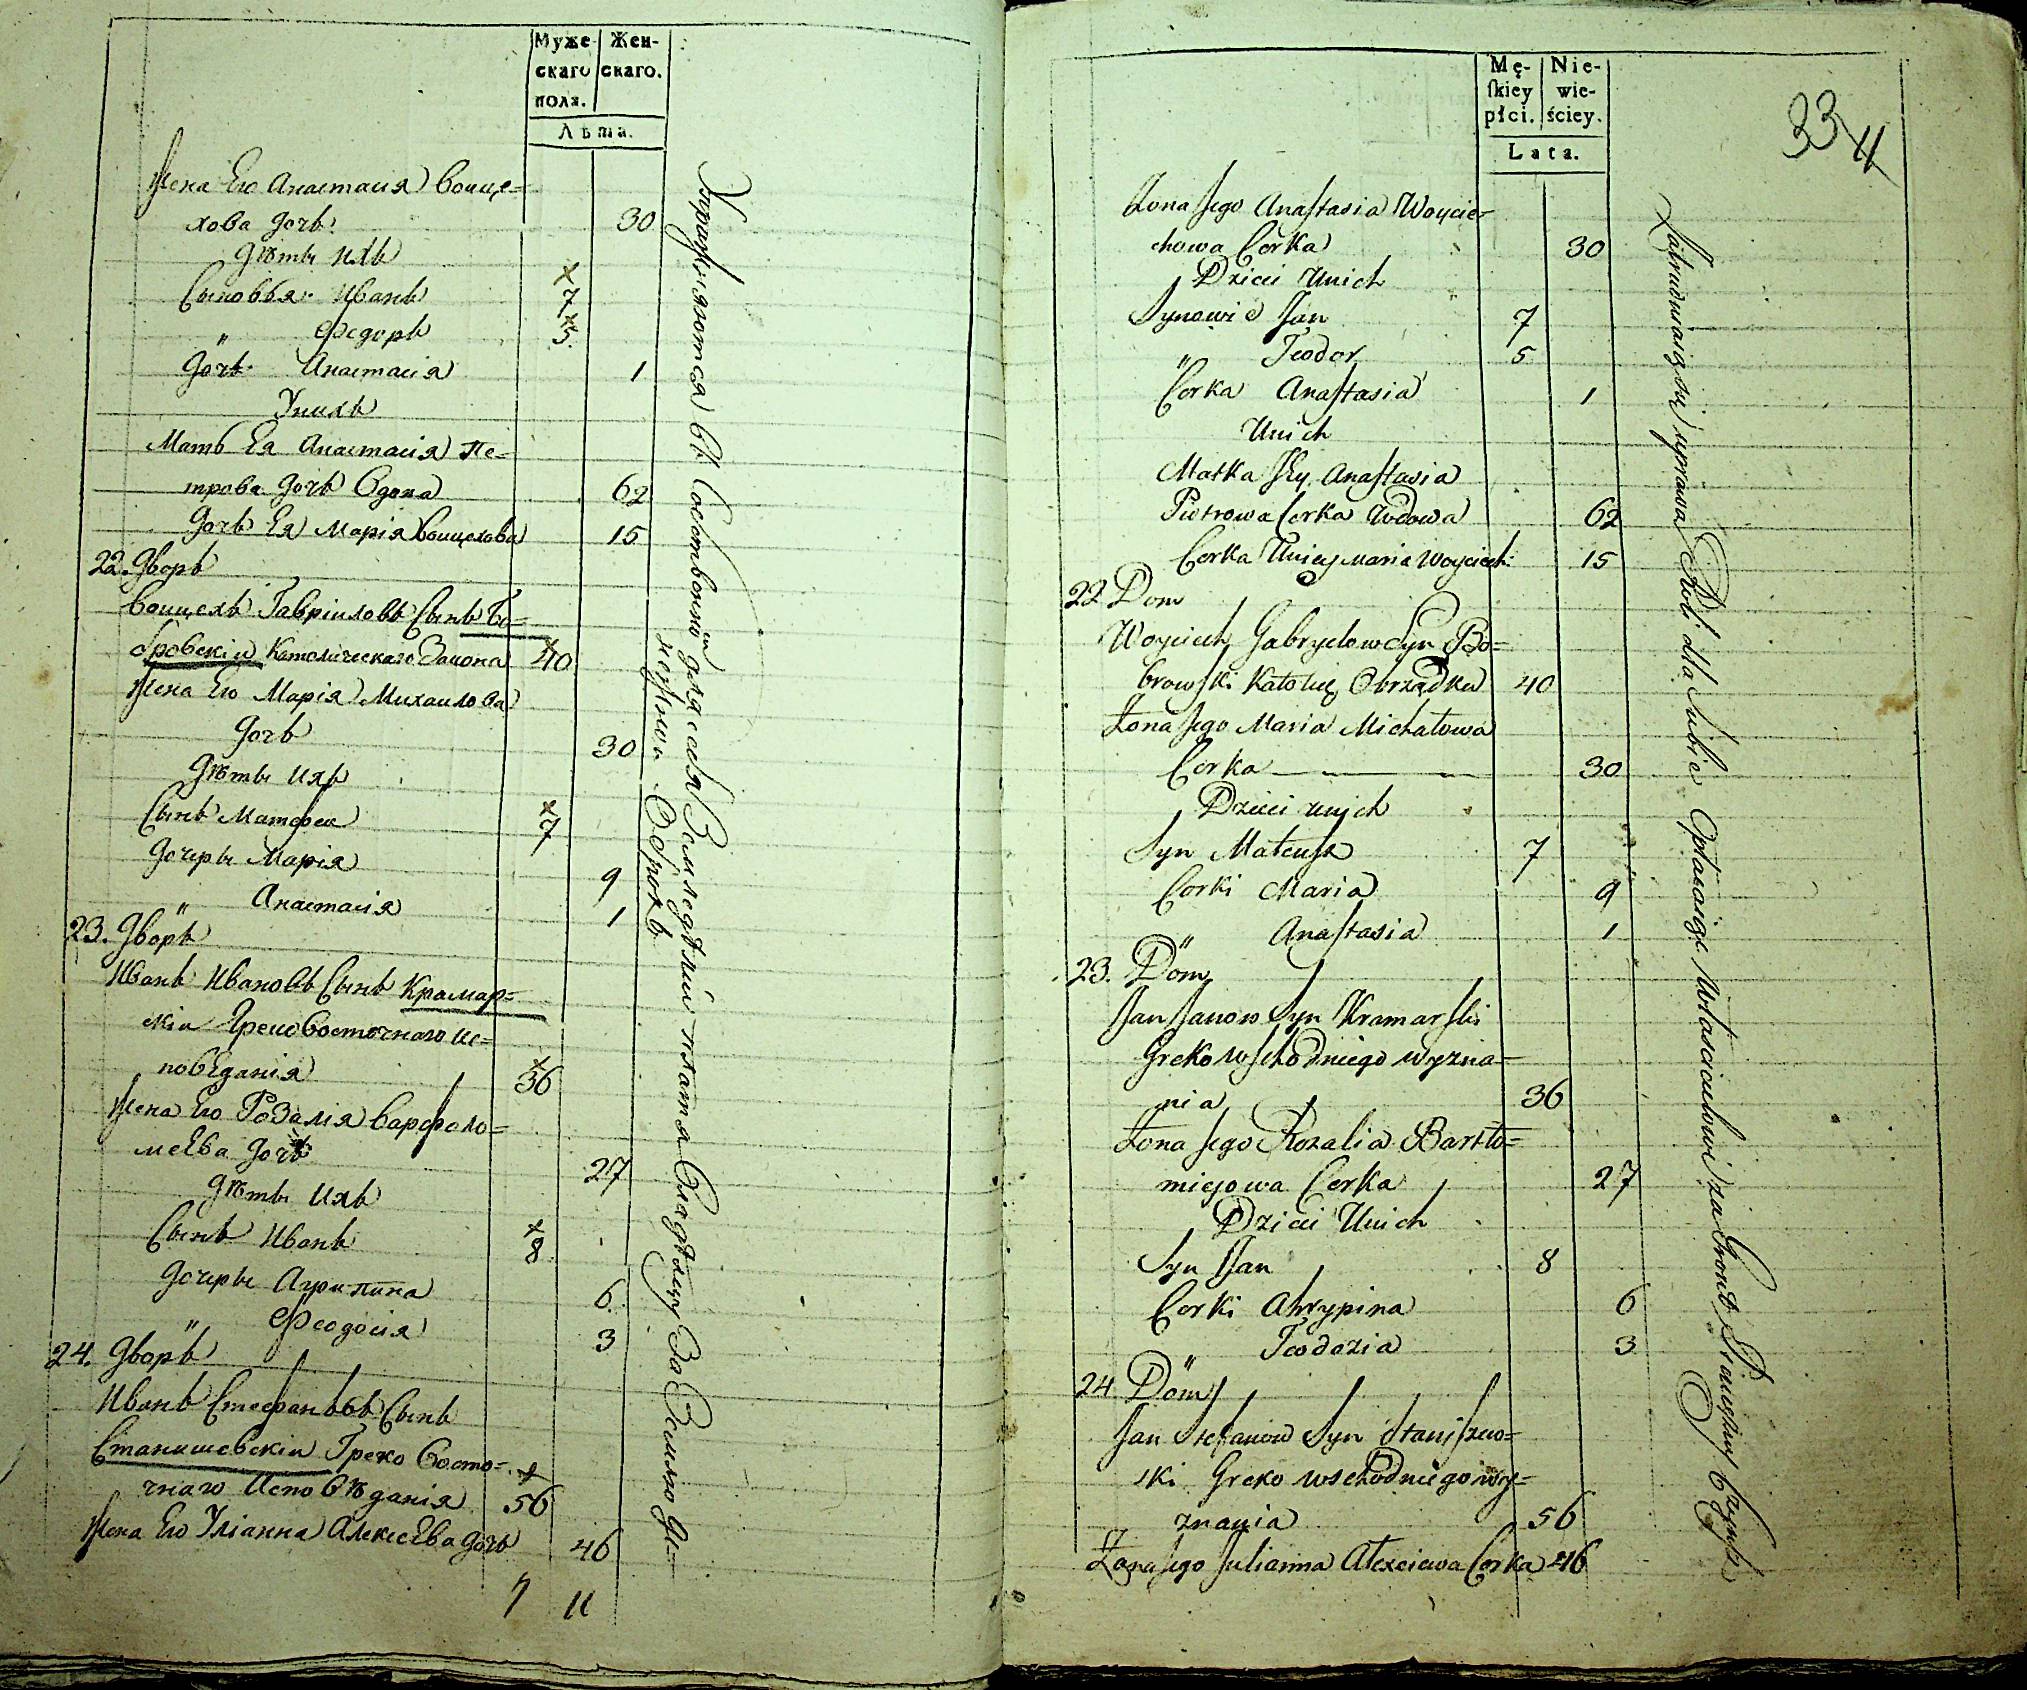 Муже- Жен-
скаго скаго.
пола.
Лѣта.
Жена Его Анастасия Войце=
хова дочь 30
Дѣти ихъ
Сыновья Иванъ 7
" Федоръ 5
Дочь Анастасія 1
Унихъ
Мать Ея Анастасія Пе=
трова дочь Вдова 62
Дочь Ея Марія Войцехова 15
22. Дворъ
Войцехъ Гавріиловъ Сынъ Бо=
бровскій Католическаго Закона 40
Жена Его Марія Михайлова
дочь 30
Дѣти ихъ
Сынъ Матфей 7
Дочери Марія 9
" Анастасія 1
23. Дворъ
Иванъ Ивановъ Сынъ Крамар=
скій Греко восточнаго ис=
поведанія 36
Жена Его Розалія Варфоло=
меева дочь 27
Дѣти ихъ
Сынъ Иванъ 8
Дочери Агрипина 6
" Феодосія 3
24. Дворъ
Иванъ Стефановъ Сынъ
Станишевскій Греко Восто=
чнаго Исповѣданія 56
Жена Его Уліанна Алексеева дочь 46
7 11
Упражняются въ земледѣлій платя Владѣлцу За Землю
Оброкъ
Mę- Nie-
skiey wie-
płci. ściey.
Lata.
33
11
Żona Jego Anastasia Woycie=
chowa Corka 30
Dzieci Unich
Synowie Jan 7
" Teodor 5
Corka Anastasia 1
Unich
Matka Jey Anastasia
Piotrowa Corka Wdowa 62
Corka Uniey Maria Woyciech: 15
22 Dom
Woyciech Gabryelow Syn Bo=
browski Katolic. Obrządku 40
Żona Jego Maria Michałowa
Corka 30
Dzieci unich
Syn Mateusz 7
Corki Maria 9
" Anastasia 1
23. Dom
Jan Janow Syn Kramarski
Greko wschodniego wyzna=
nia 36
Żona Jego Rozalia Bartło=
mieiowa Corka 27
Dzieci Unich
Syn Jan 8
Corki Ahrypina 6
Teodozia 3
24 Dom
Jan Stefanow Syn Staniszew=
ski Greko wschodniego wy=
znania 56
Żona Jego Julianna Alexeiewa Corka 46
Zatrudniaią się uprawą Roli dla Siebie Opłacaiąc Właścicielowi za Gront Pieniężny Czynsz